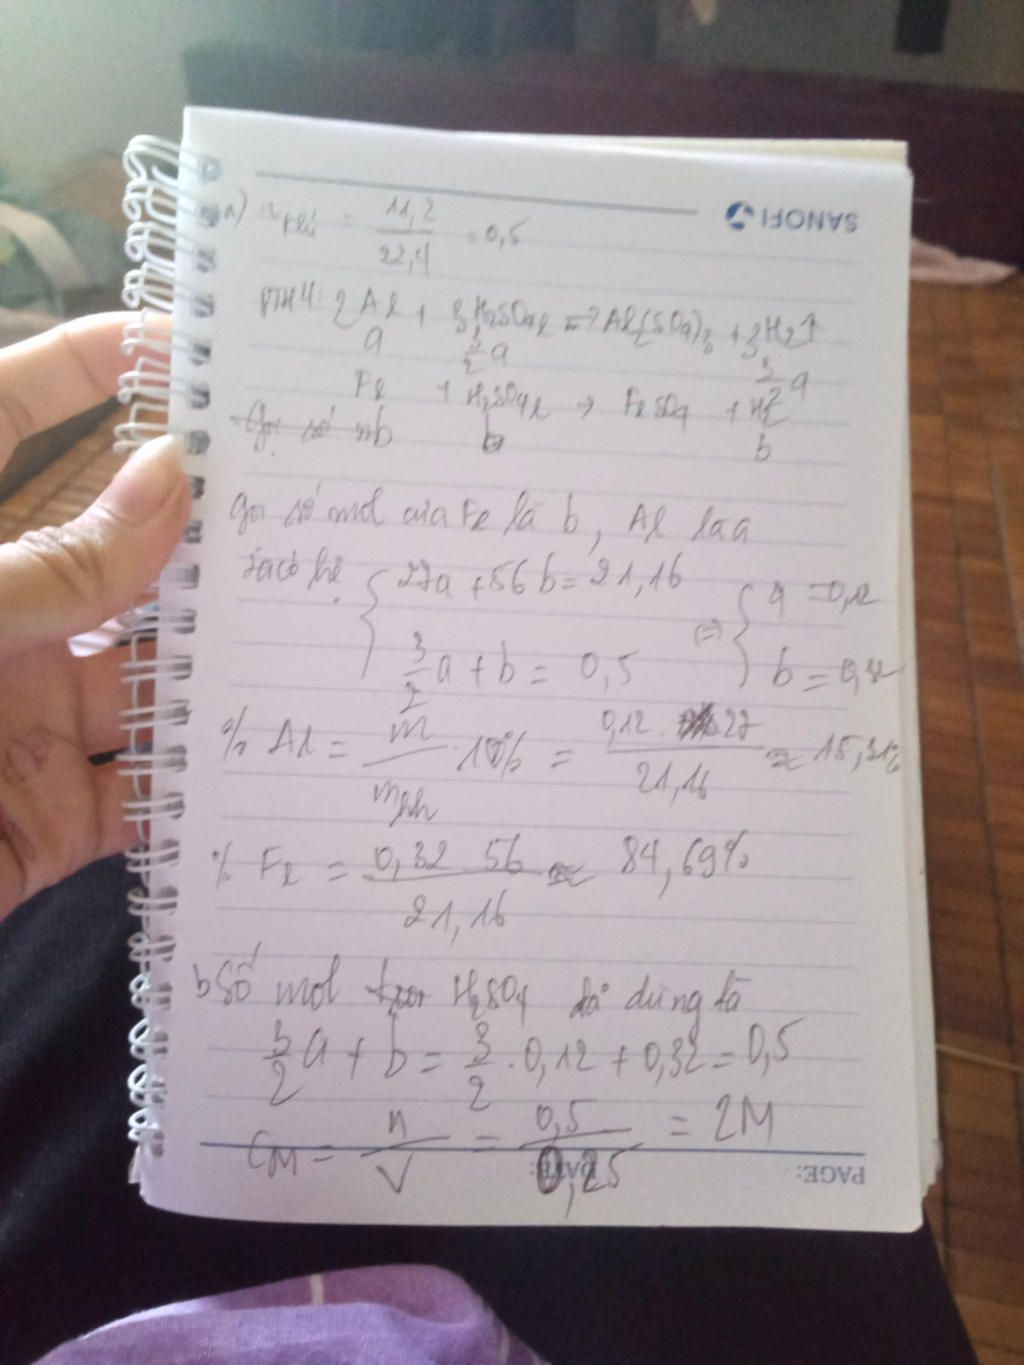 SANOFI
a) n khí = 11,2 / 22,4 = 0,5
PTHH: 2Al + 3H2SO4l => Al2(SO4)3 + 3H2↑
a 3/2 a 3/2 a
Fe + H2SO4l → FeSO4 + H2
Gọi số mb b b
Gọi số mol của Fe là b, Al là a
Ta có hệ { 27a + 56b = 21,16 3/2 a + b = 0,5 (=) { a = 0,12 b = 0,32
% Al = m / mhh . 100% = 0,12 . 27 / 21,16 ≈ 15,31%
% Fe = 0,32 . 56 / 21,16 ≈ 84,69%
b Số mol H2SO4 đã dùng là
3/2 a + b = 3/2 . 0,12 + 0,32 = 0,5
CM = n / V = 0,5 / 0,25 = 2M
DATE:
PAGE: